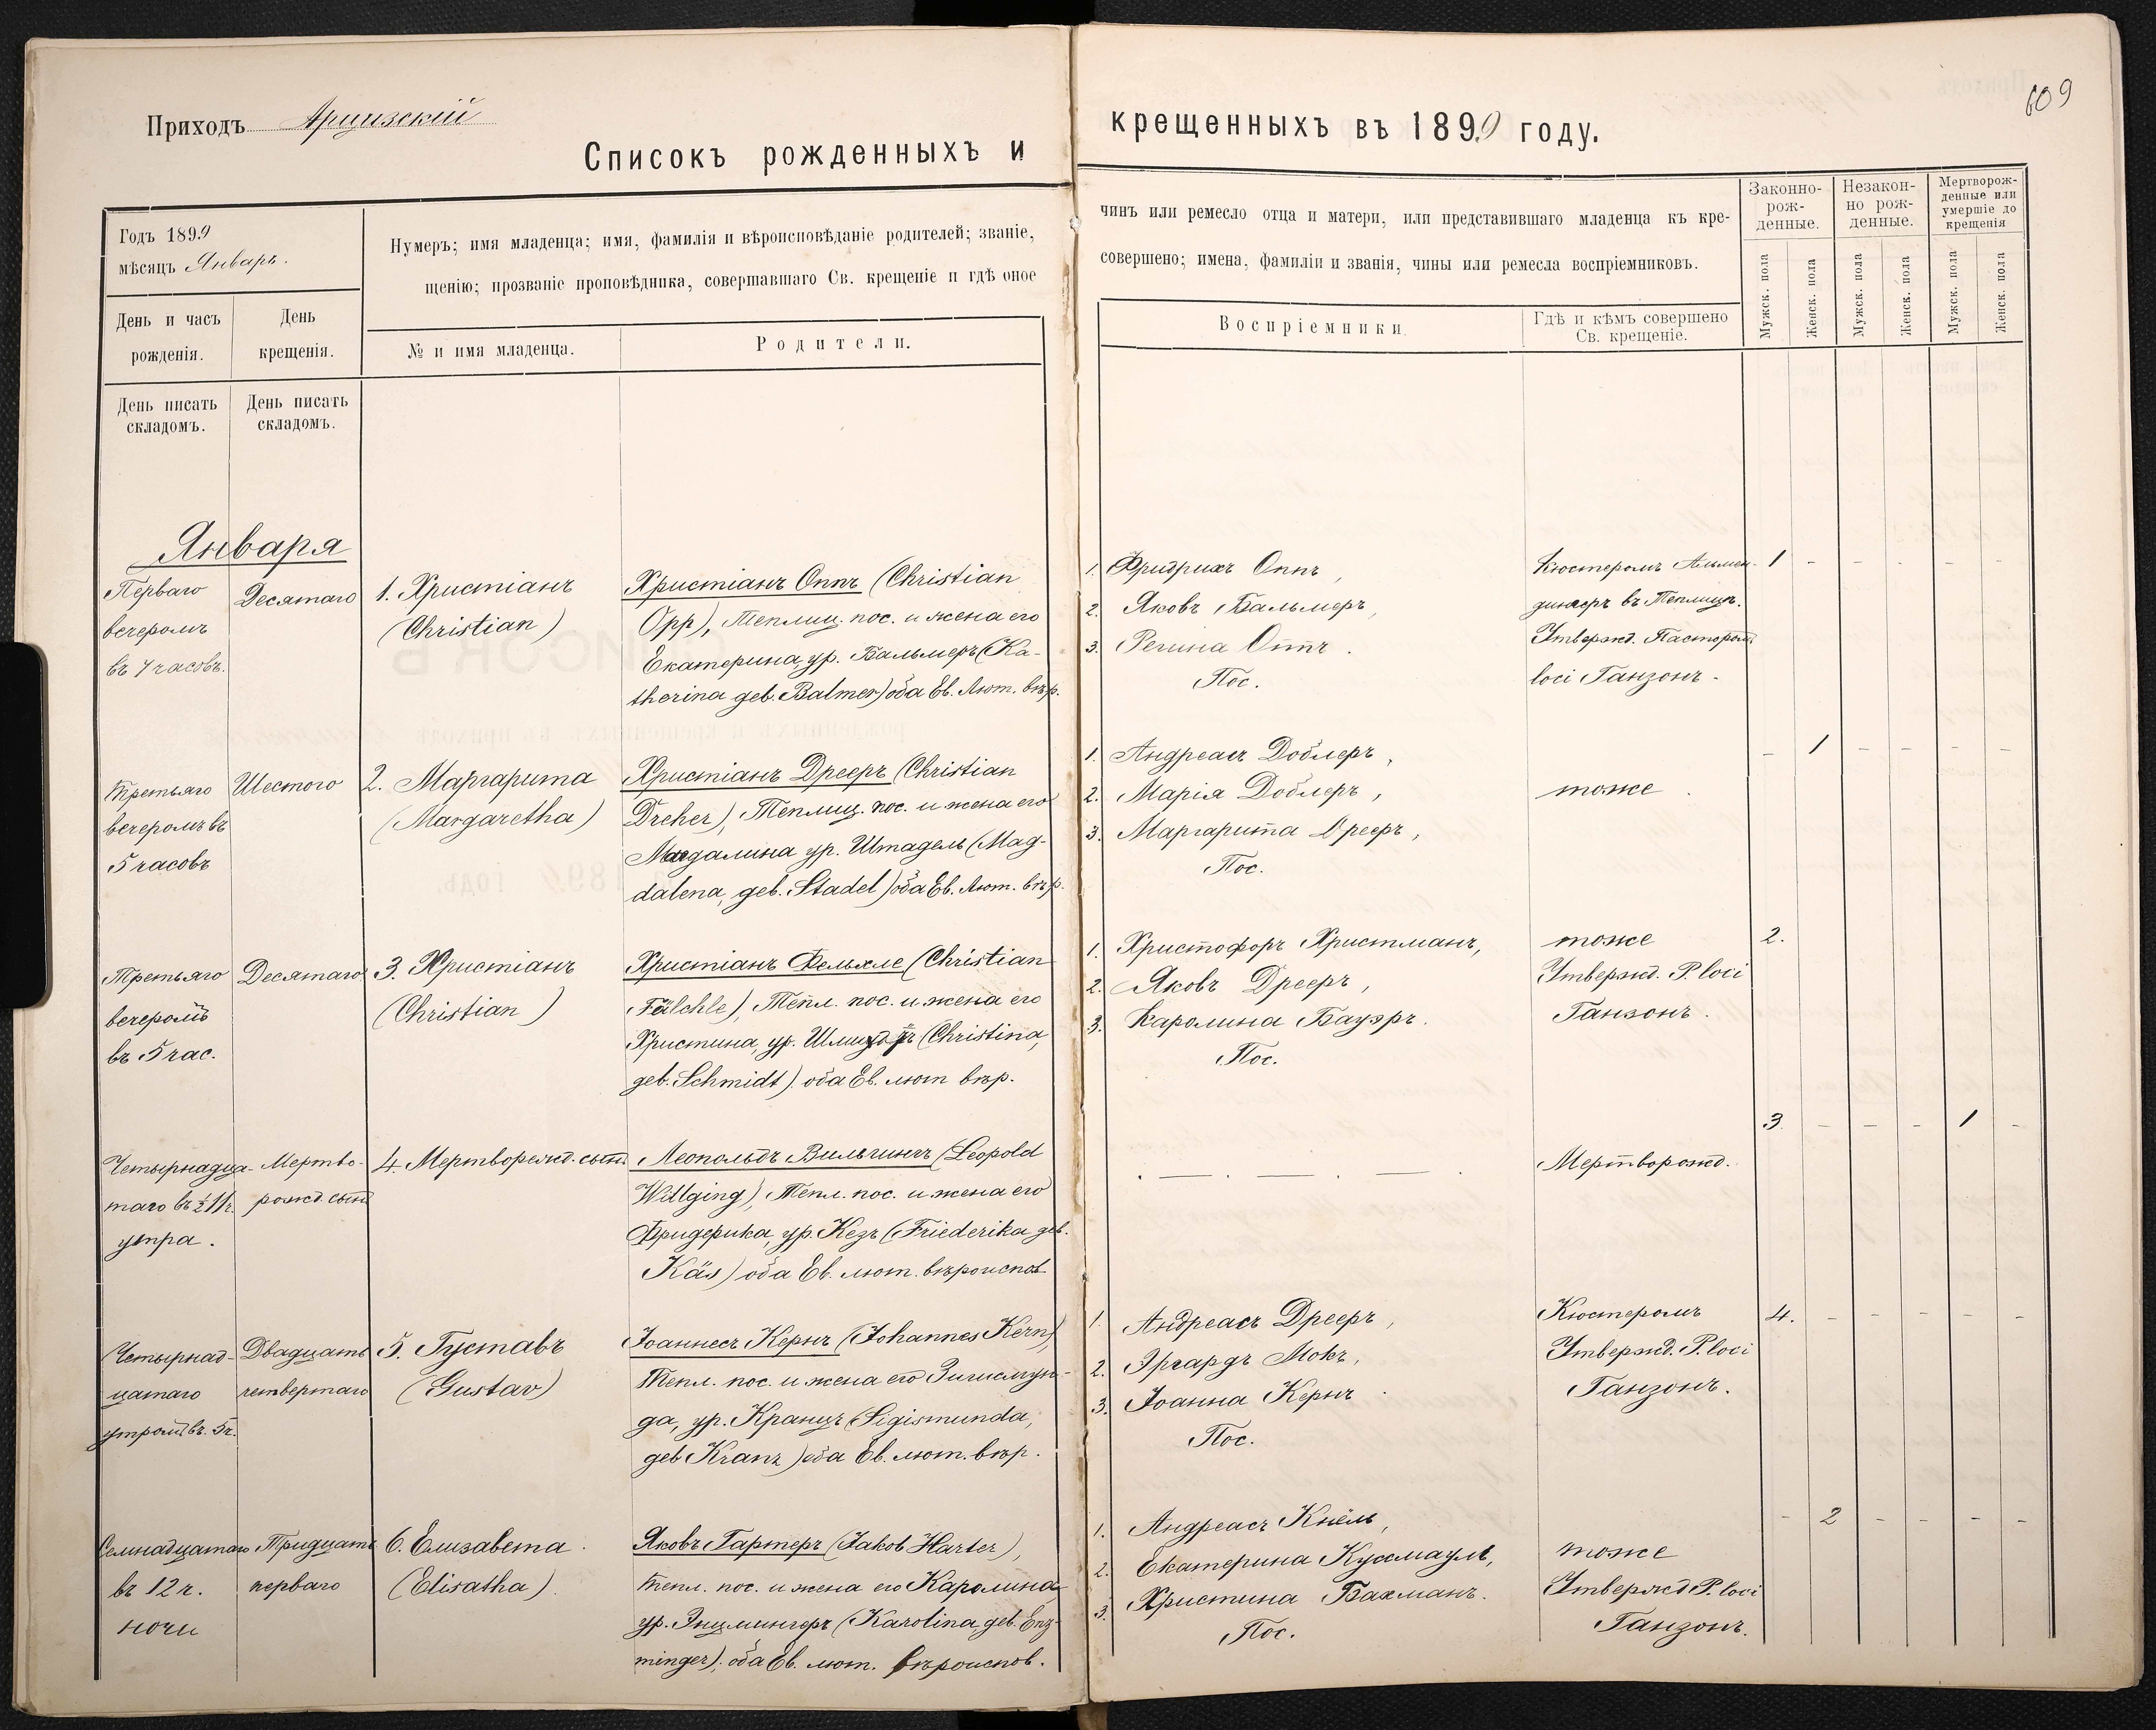 Приходъ Арцизскій
Списокъ рожденныхъ и
Годъ 1899
мѣсяцъ Январь.
Нумеръ; имя младенца; имя, фамилія и вѣроисповѣданіе родителей; званіе,
щенію; прозваніе проповѣдника, совершавшаго Св. крещеніе и гдѣ оное
День и часъ рожденія.
День крещенія.
№ и имя младенца.
Родители.
День писать складомъ.
День писать складомъ.
Января
Перваго
вечеромъ
въ 7 часовъ.
Десятаго
1. Христіанъ
(Christian)
Христіанъ Оппъ (Christian
Opp), Теплиц. пос. и жена его
Екатерина, ур. Бальмеръ (Ka-
therina geb. Balmer) оба Ев. Лют. вѣр.
Третьяго
вечеромъ въ
5 часовъ
Шестого
2. Маргарита
(Margaretha)
Христіанъ Дрееръ (Christian
Dreher), Теплиц. пос. и жена его
Магдалина ур. Штадель (Mag-
dalena, geb. Stadel) оба Ев. Лют. вѣр.
Третьяго
вечеромъ
въ 5 час.
Десятаго
3. Христіанъ
(Christian)
Христіанъ Фельхле (Christian
Fälchle), Тепл. пос. и жена его
Христина, ур. Шмидтъ (Christina,
geb. Schmidt) оба Ев. лют вѣр.
Четырнадца-
таго въ ½ 11 ч.
утра.
Мертво-
рожд. сынъ
4. Мертворожд. сынъ
Леопольдъ Вильгингъ (Leopold
Willging), Тепл. пос. и жена его
Фридерика, ур. Кезъ (Friederika geb.
Käs) оба Ев. лют. вѣроиспов
Четырнад-
цатаго
утромъ въ 5 ч.
Двадцать
четвертаго
5. Густавъ
(Gustav)
Іоаннесъ Кернъ (Johannes Kern),
Тепл. пос. и жена его Зигисмун-
да, ур. Кранцъ (Sigismunda,
geb Kranz) оба Ев. лют. вѣр.
Семнадцатаго
въ 12 ч.
ночи
Тридцать
перваго
6. Елизавета.
(Elisatha)
Яковъ Гартеръ (Jakob Harter),
Тепл. пос. и жена его Каролина,
ур. Энцмингеръ (Karolina geb. Enz-
minger). оба Ев. лют. вѣроиспов.
609
крещенныхъ въ 1899 году.
чинъ или ремесло отца и матери, или представившаго младенца къ кре-
совершено; имена, фамиліи и званія, чины или ремесла воспріемниковъ.
Воспріемники.
Гдѣ и кѣмъ совершено Св. крещеніе.
Законно-рож-денные.
Незакон-но рож-денные.
Мертворож-денные или умершіе до крещенія
Мужск. пола
Женск. пола
Мужск. пола
Женск. пола
Мужск. пола
Женск. пола
1. Фридрихъ Оппъ,
2. Яковъ Бальмеръ,
3. Регина Оппъ.
Пос.
Кюстеромъ Альмен-
дингеръ въ Теплицѣ.
Утвержд. Пасторомъ
loci Ганзонъ.
1 - - - - -
1. Андреасъ Доблеръ,
2. Марія Доблеръ,
3. Маргарита Дрееръ,
Пос.
тоже.
- 1 - - - -
1. Христофоръ Христманъ,
2. Яковъ Дрееръ,
3. Каролина Бауэръ.
Пос.
тоже
Утвержд. P. loci
Ганзонъ.
2.
Мертворожд.
3 - - - 1 -
1. Андреасъ Дрееръ,
2. Эргардъ Мокъ,
3. Іоанна Кернъ.
Пос.
Кюстеромъ
Утвержд. P. loci
Ганзонъ.
4. - - - - -
1. Андреасъ Кнёль,
2. Екатерина Куссмауль,
3. Христина Бахманъ.
Пос.
тоже
Утвержд P. loci
Ганзонъ.
- 2 - - - -